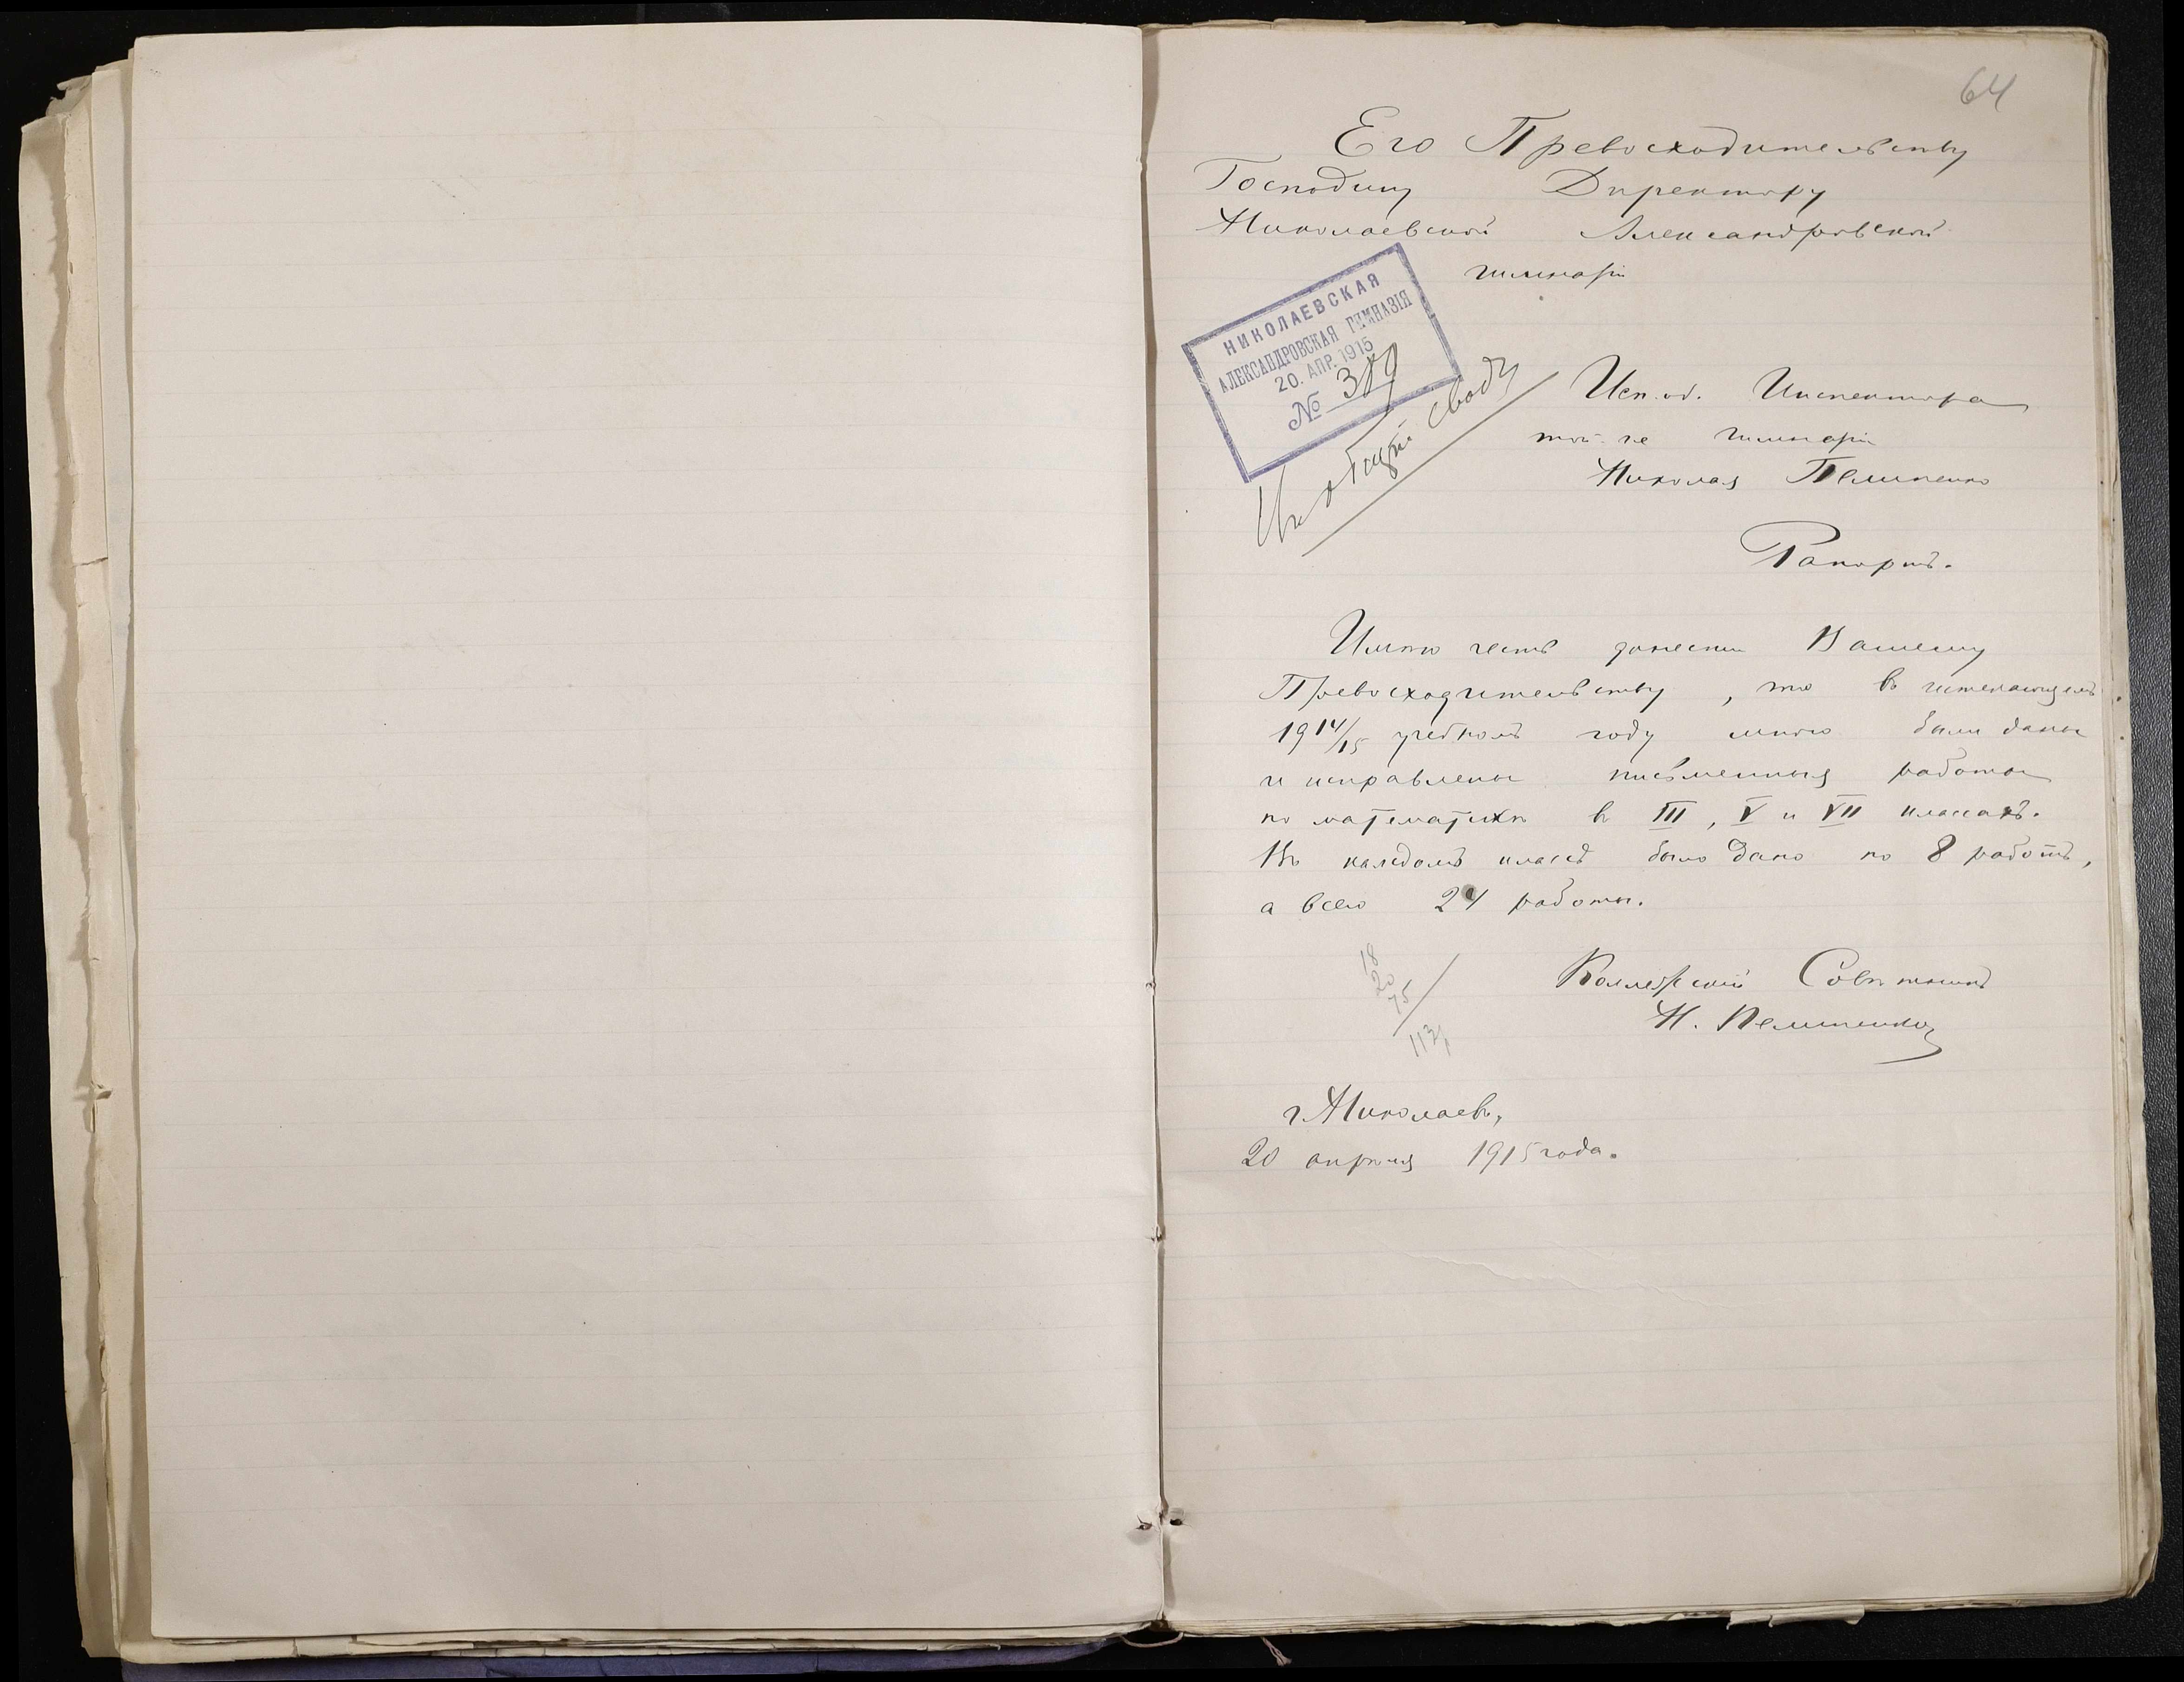 64
Его Превосходительству
Господину Директору
Николаевской Александровской
гимназіи
НИКОЛАЕВСКАЯ
АЛЕКСАНДРОВСКАЯ ГИМНАЗІЯ
20. АПР. 1915
№
общій сводъ
Исп. об. Инспектора
той-же гимназіи
Николая
Рапортъ.
Имѣю честь донести Вашему
Превосходительству, что въ истекающемъ
1914/15 учебномъ году мною были даны
и исправлены письменныя работы
по математикѣ въ III, V и VII классахъ.
Въ каждомъ классѣ было дано по 8 работъ,
а всего 24 работы.
18
20
75
113
Коллежскій Совѣтникъ
Н.
г. Николаевъ,
20 апрѣля 1915 года.